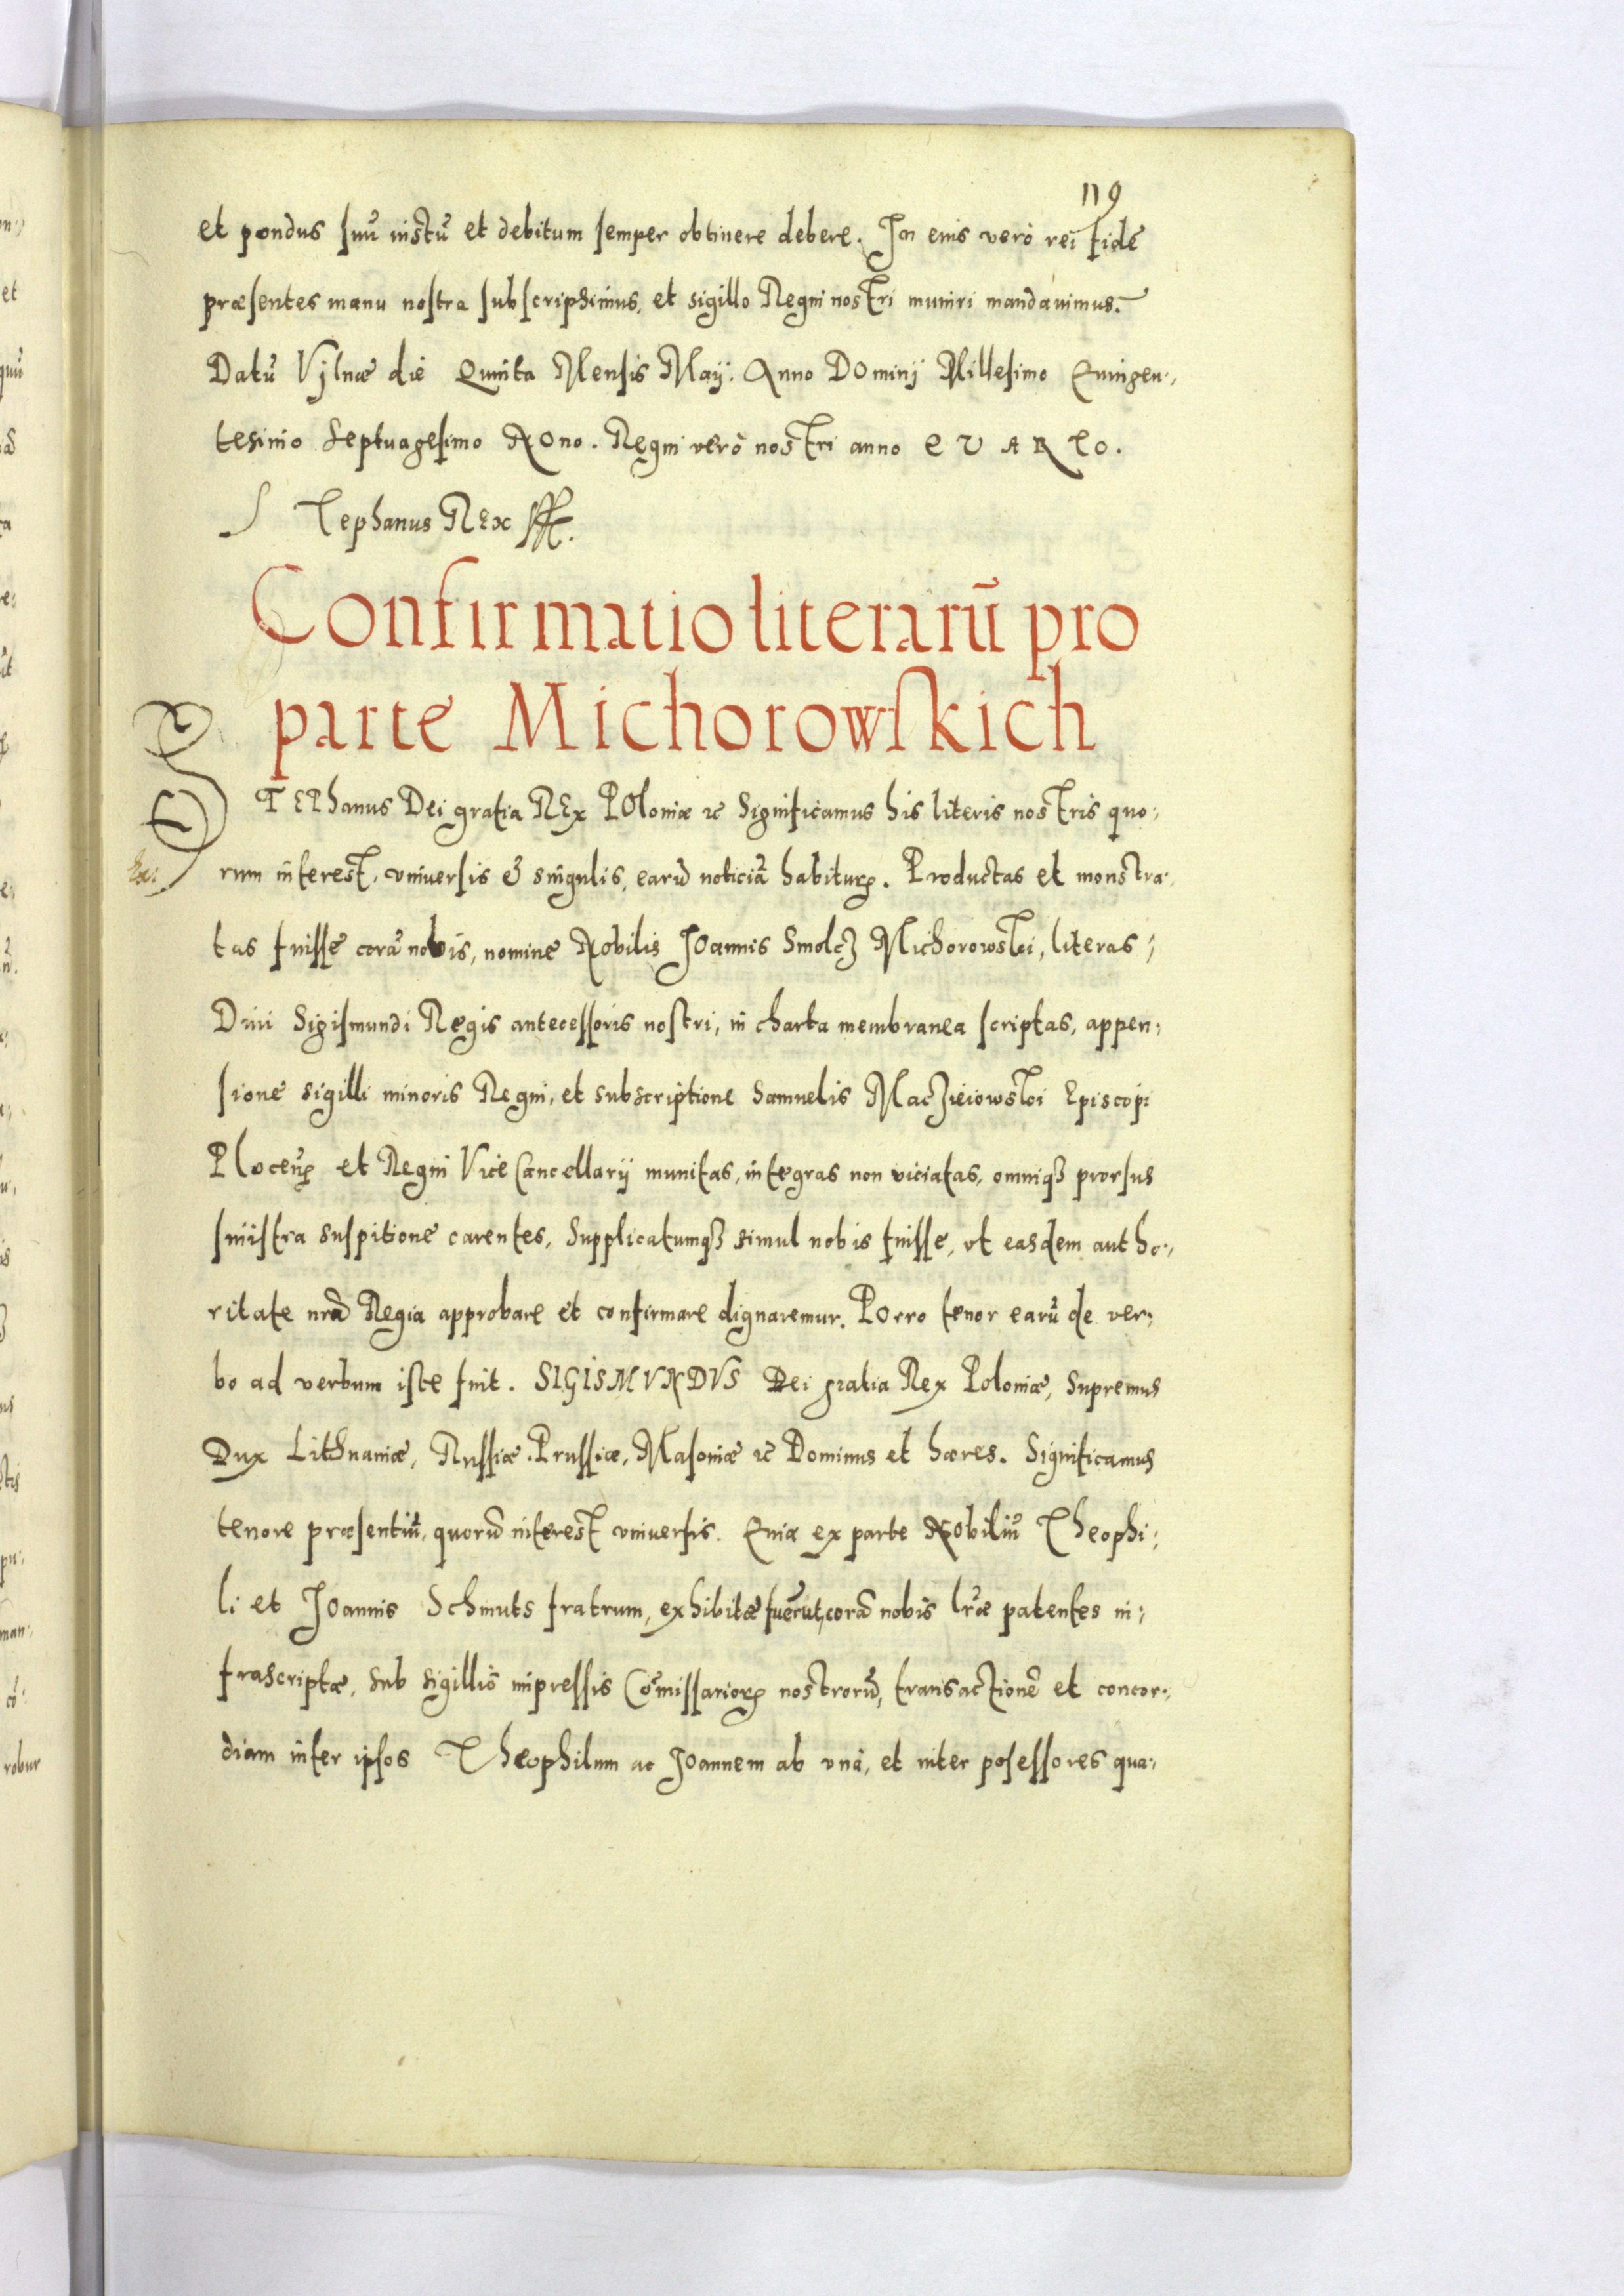 119
et pondus suũ iustũ et debitum semper obtinere debere. In eius verò rei fidẽ
præsentes manu nostra subscripsimus, et sigillo Regni nostri muniri mandauimus.
Datũ Vilnæ die Quinta Mensis Maij. Anno Dominj Millesimo Quingen:,
tesimo Septuagesimo Nono. Regni verò nostri anno QVARTO.
Stephanus REx
Confirmatio literarũ pro
parte Michorowskich
STEPhanus Dei gratia REx POloniæ etc Significamus his literis nostris quo:,
rum interest, vniuersis et singulis, earũ noticiã habituꝝ. Productas et monstra:,
tas fuisse corã nobis, nomine Nobilis JOannis Smolcz Michorowski, literas,
Diui Sigismundi Regis antecessoris nostri, in charta membranea scriptas, appen:,
sione sigilli minoris Regni, et subscriptione Samuelis Maczieiowski Episcopi
Ploceñ et Regni Vice Cancellarij munitas, integras non viciatas, omniqꝫ prorsus
sinistra suspitione carentes, Supplicatumqꝫ simul nobis fuisse, vt easdem autho:,
ritate nr̃a Regia approbare et confirmare dignaremur. POrro tenor earũ de ver:,
bo ad verbum iste fuit. SIGISMVNDVS Dei gratia Rex Poloniæ, Supremus
Dux Lithuaniæ, Russiæ, Prussiæ, Masoniæ etc Dominus et hæres. Significamus
tenore præsentiũ, quorũ interest vniuersis. Quia ex parte Nobiliũ Theophi:,
li et JOannis Schmuts fratrum, exhibitæ fuerũt, corã nobis lr̃æ patentes in:,
frascriptæ, sub sigillis impressis Cõmissarioꝝ nostrorũ, transactionẽ et concor:,
diam inter ipsos Theophilum ac JOannem ab vna, et inter posessores qua:,